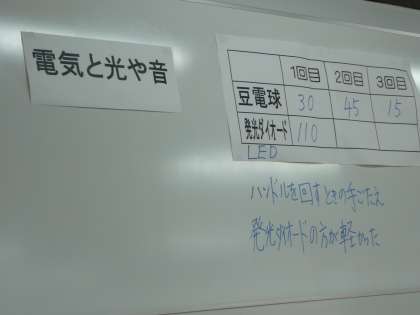 電気と光や音
1回目 2回目 3回目
豆電球 30 45 15
発光ダイオード 110
LED
ハンドルを回すときの手ごたえ
発光ダイオードの方が軽かった